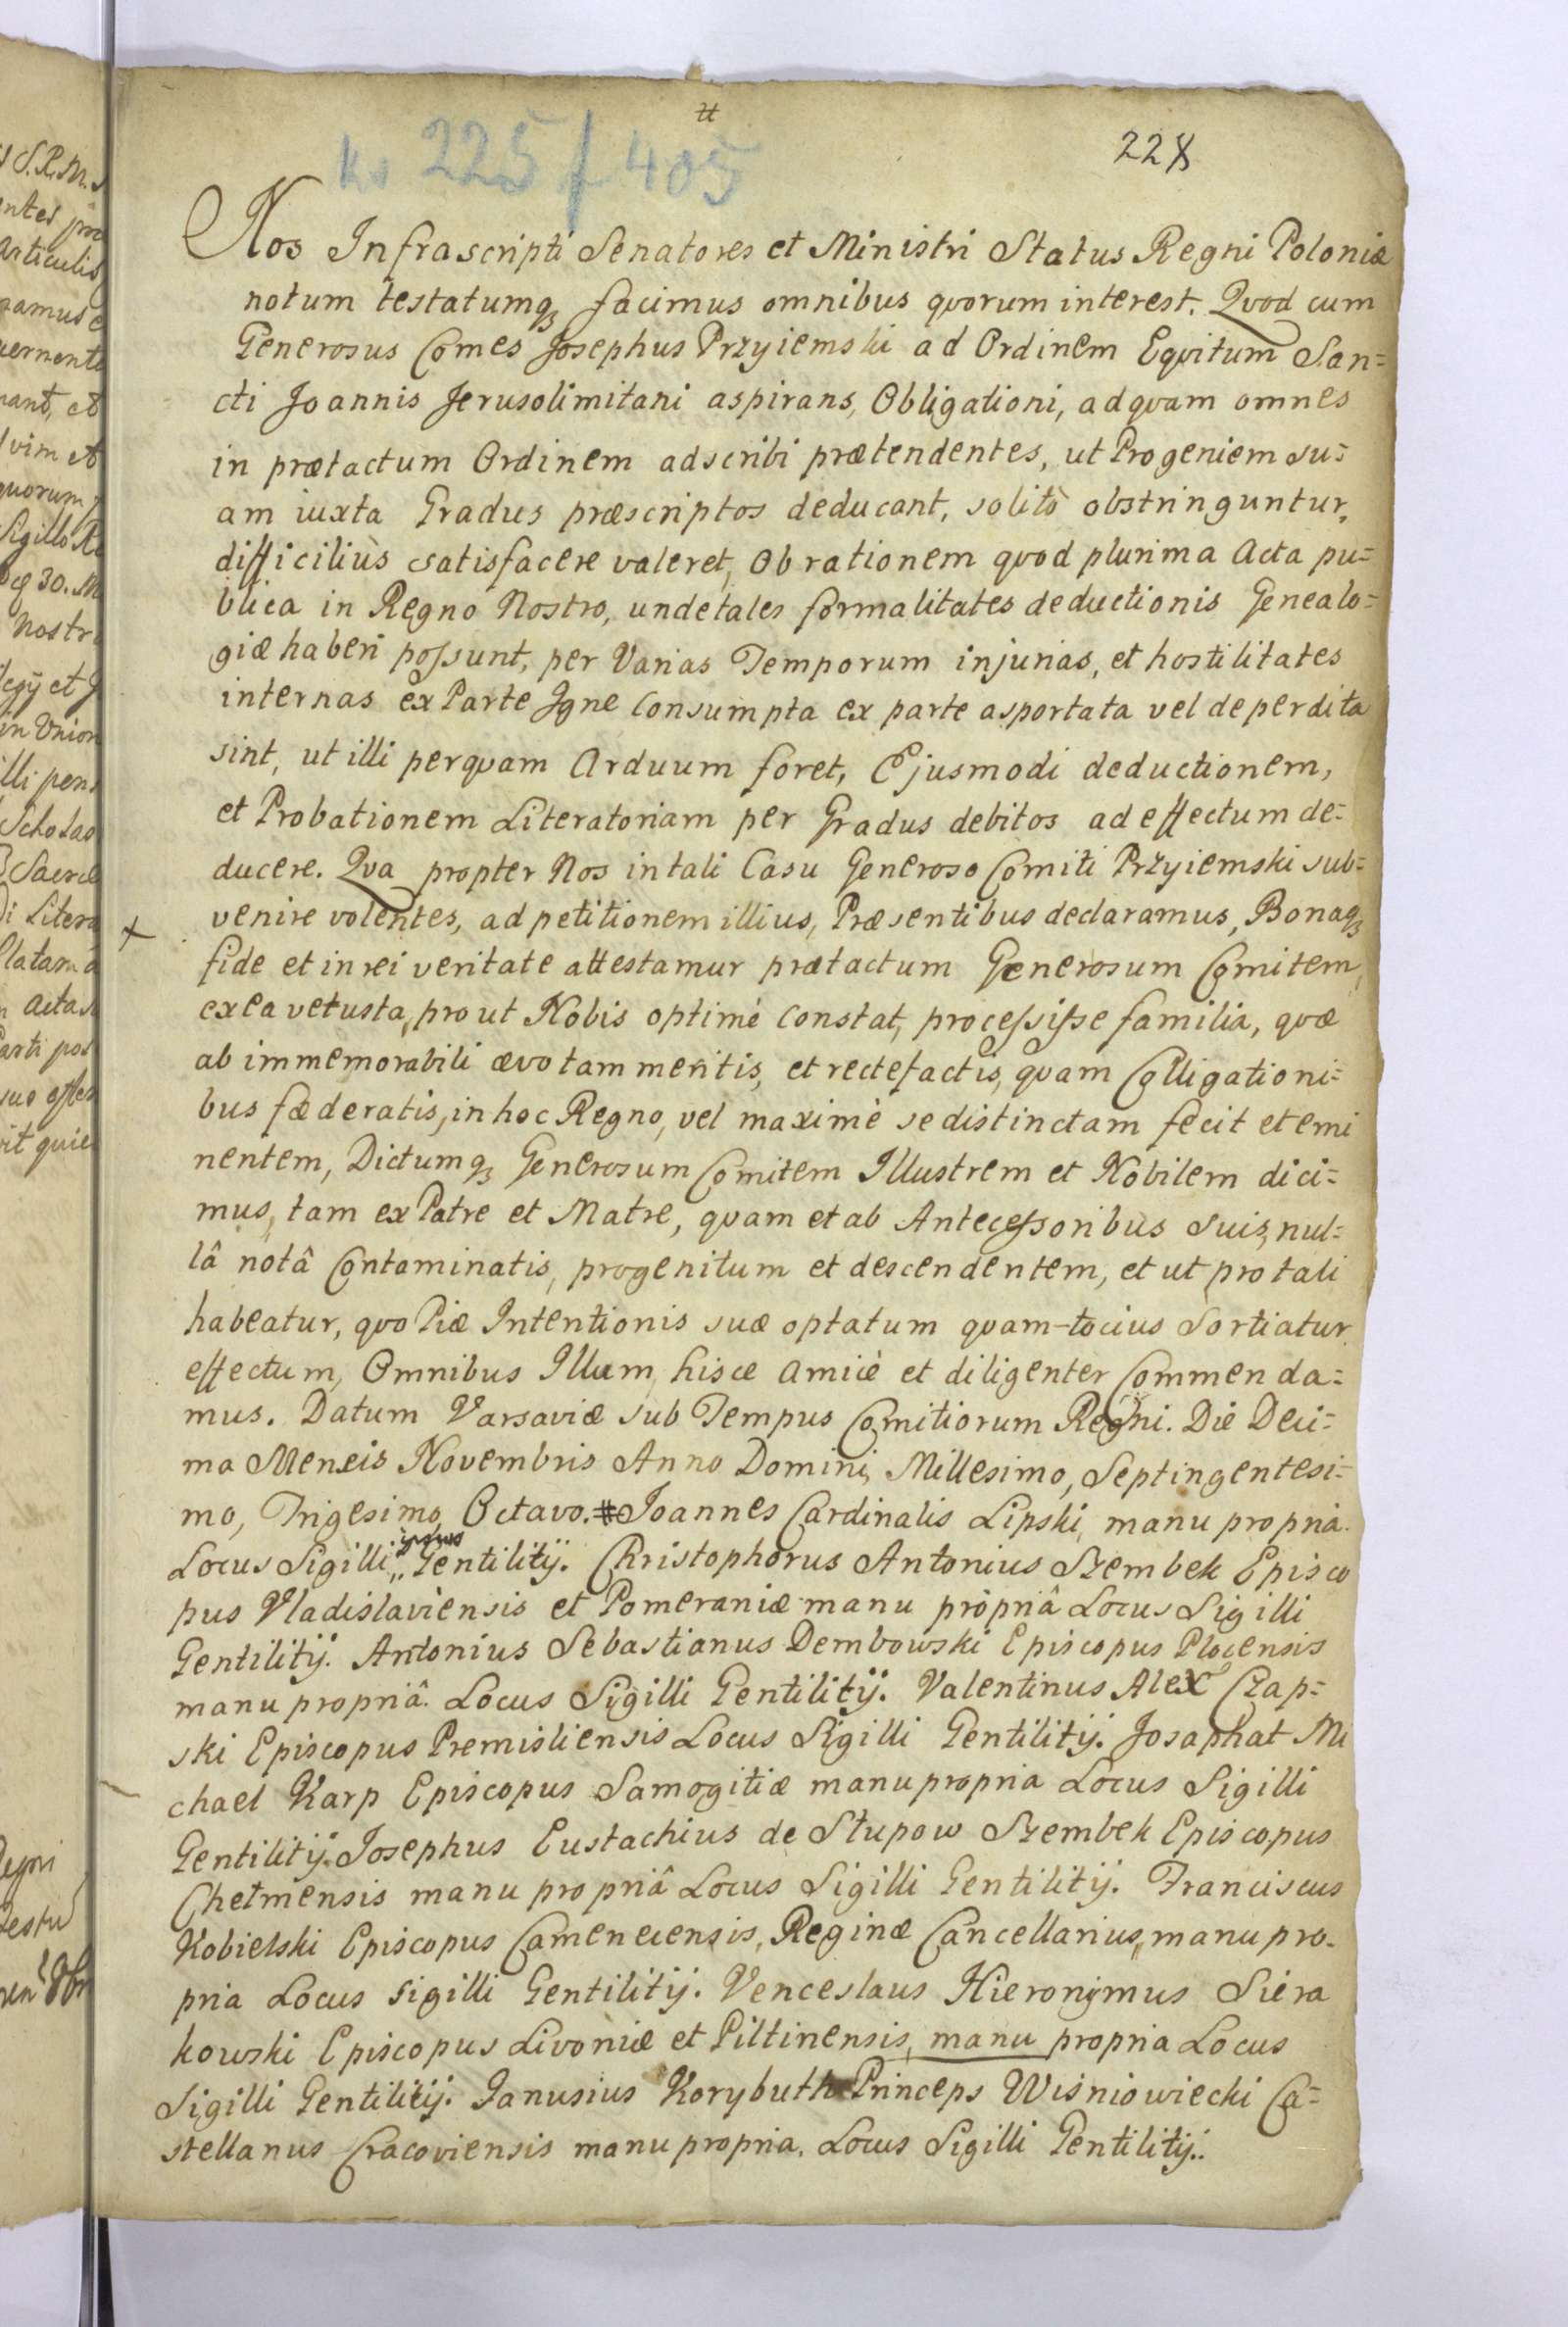 #
Ks 225 f 405
228
Nos Infrascripti Senatores et Ministri Status Regni Poloniæ
notum testatumqꝫ facimus omnibus qvorum interest. Qvod cum
Generosus Comes Josephus Przyiemski ad Ordinem Eqvitum San=
cti Joannis Jerusolimitani aspirans, Obligationi, ad qvam omnes
in prætactum Ordinem adscribi prætendentes, ut Progeniem su=
am iuxta Gradus præscriptos deducant, solitò obstringuntur,
difficiliùs satisfacere valeret, Ob rationem qvod plurima Acta pu=
blica in Regno Nostro, unde tales formalitates deductionis Genealo=
giæ haberi possunt, per Varias Temporum injurias, et hostilitates
internas ex Parte Igne Consumpta ex parte asportata vel deperdita
sint, ut illi perqvam Arduum foret, Ejusmodi deductionem,
et Probationem Literatoriam per Gradus debitos ad effectum de=
ducere. Qva propter Nos in tali Casu Generoso Comiti Przyiemski sub=
venire volentes, ad petitionem illius, Præsentibus declaramus, Bonaqꝫ
fide et in rei veritate attestamur prætactum Generosum Comitem,
ex ea vetusta, prout Nobis optimè Constat, processisse familia, qvæ
ab immemorabili ævo tam meritis, et rectefactis, qvam Colligationi=
bus fæderatis, in hoc Regno, vel maximè se distinctam fecit et emi
nentem, Dictumqꝫ Generosum Comitem Illustrem et Nobilem dici=
mus, tam ex Patre et Matre, qvam et ab Antecessoribus Suis, nul=
lâ notâ Contaminatis, progenitum et descendentem, et ut pro tali
habeatur, qvo Piæ Intentionis suæ optatum qvam-tocius Sortiatur
effectum, Omnibus Illum hisce Amicè et diligenter Commenda=
mus. Datum Varsaviæ sub Tempus Comitiorum Regni. Die Deci=
ma Mensis Novembris Anno Domini Millesimo, Septingentesi=
mo, Trigesimo, Octavo. # Joannes Cardinalis Lipski, manu propria.
Locus Sigilli ipsius Gentilitij. Christophorus Antonius Szembek Episco
pus Vladislaviensis et Pomeraniæ manu propriâ Locus Sigilli
Gentilitij. Antonius Sebastianus Dembowski Episcopus Plocensis
manu propriâ. Locus Sigilli Gentilitij. Valentinus Alex Czap=
ski Episcopus Premisliensis Locus Sigilli Gentilitij. Josaphat Mi
chael Karp Episcopus Samogitiæ manu propria Locus Sigilli
Gentilitij. Josephus Eustachius de Słupow Szembek Episcopus
Chełmensis manu propriâ Locus Sigilli Gentilitij. Franciscus
Kobielski Episcopus Camenecensis, Reginæ Cancellarius, manu pro-
pria Locus Sigilli Gentilitij. Venceslaus Hieronymus Siera
kowski Episcopus Livoniæ et Piltinensis, manu propria Locus
Sigilli Gentilitij. Janusius Korybuth Princeps Wiśniowiecki Ca=
stellanus Cracoviensis manu propria. Locus Sigilli Gentilitij.